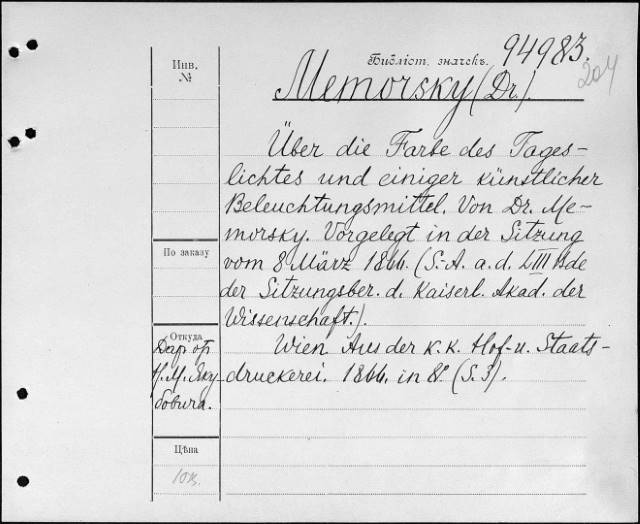 Инв.
№
Библіот. значекъ. 94983.
204
Memorsky (Dr.).
Über die Farbe des Tages-
lichtes und einiger künstlicher
Beleuchtungsmittel. Von Dr. Me-
morsky. Vorgelegt in der Sitzung
vom 8 März 1866. (S.-A. a. d. LIII Bde
der Sitzungsber. d. Kaiserl. Akad. der
Wissenschaft.).
Wien Aus der K. K. Hof- u. Staats-
druckerei. 1866. in 8º (S. 3).
По заказу
Откуда
Дар от
Н. М. Яку-
бовича.
Цѣна
10к.